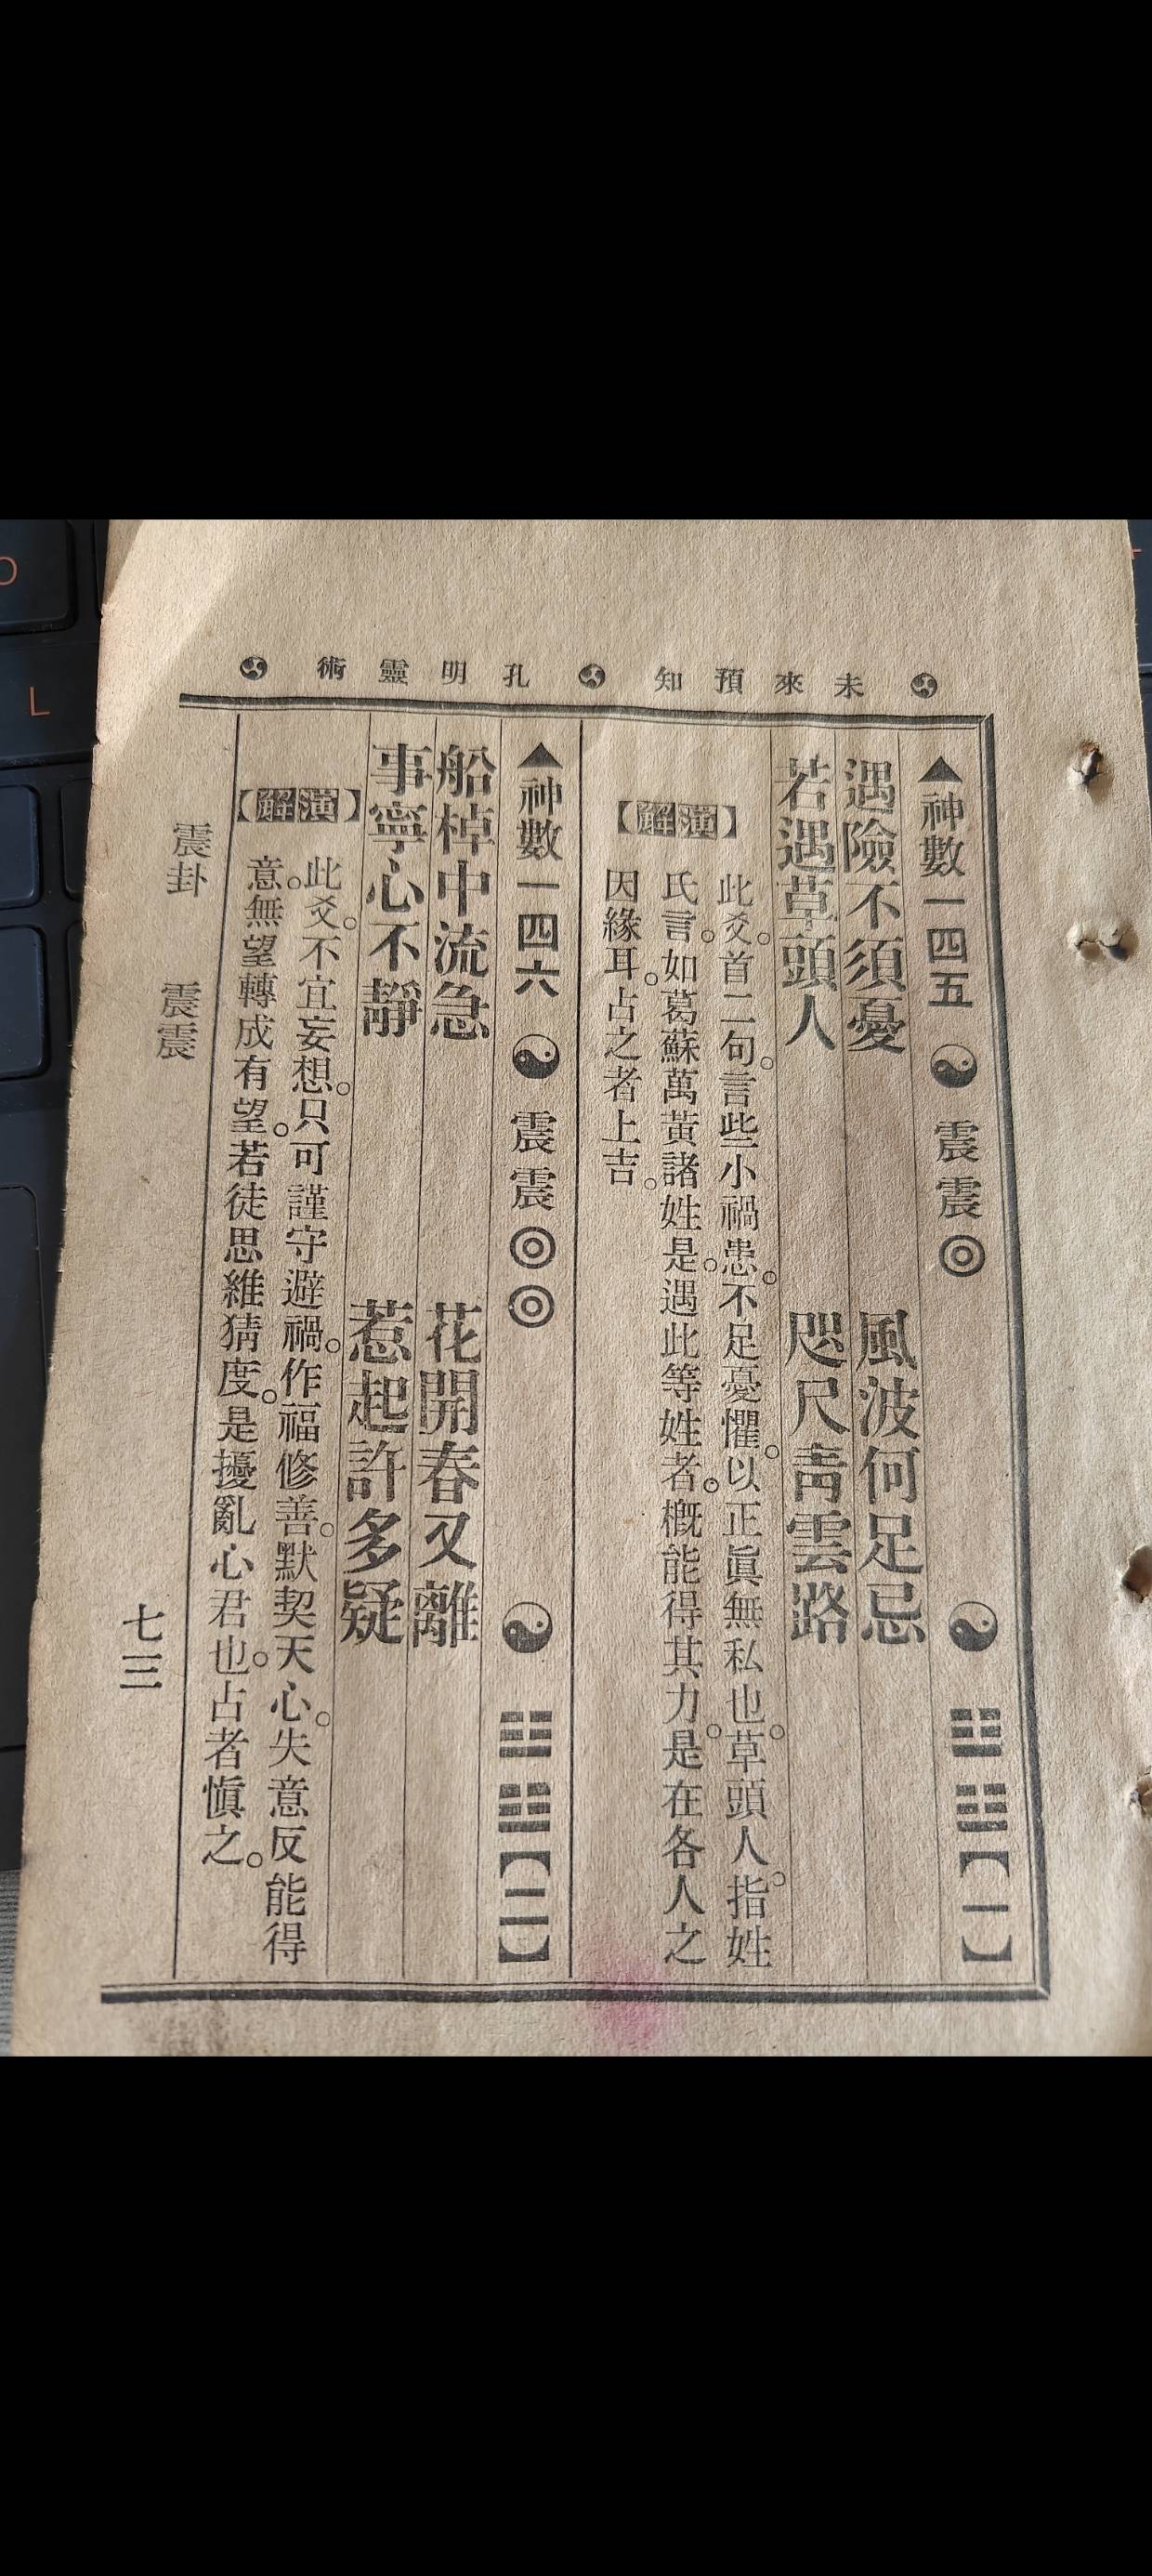 未來預知 孔明靈術
▲神數一四五 ☯ 震震◎ ☯ ☳☳【一】
遇險不須憂 風波何足忌
若遇草頭人 咫尺靑雲路
【演解】
此爻。首二句。言些小禍患。不足憂懼。以正眞無私也。草頭人。指姓
氏言。如葛蘇萬黃諸姓是。遇此等姓者。槪能得其力。是在各人之
因緣耳。占之者上吉。
▲神數一四六 ☯ 震震◎◎ ☯ ☳☳【二】
船棹中流急 花開春又離
事寧心不靜 惹起許多疑
【演解】
此爻。不宜妄想。只可謹守避禍。作福修善。默契天心。失意反能得
意。無望轉成有望。若徒思維猜度。是擾亂心君也。占者愼之。
震卦 震震 七三
O
L